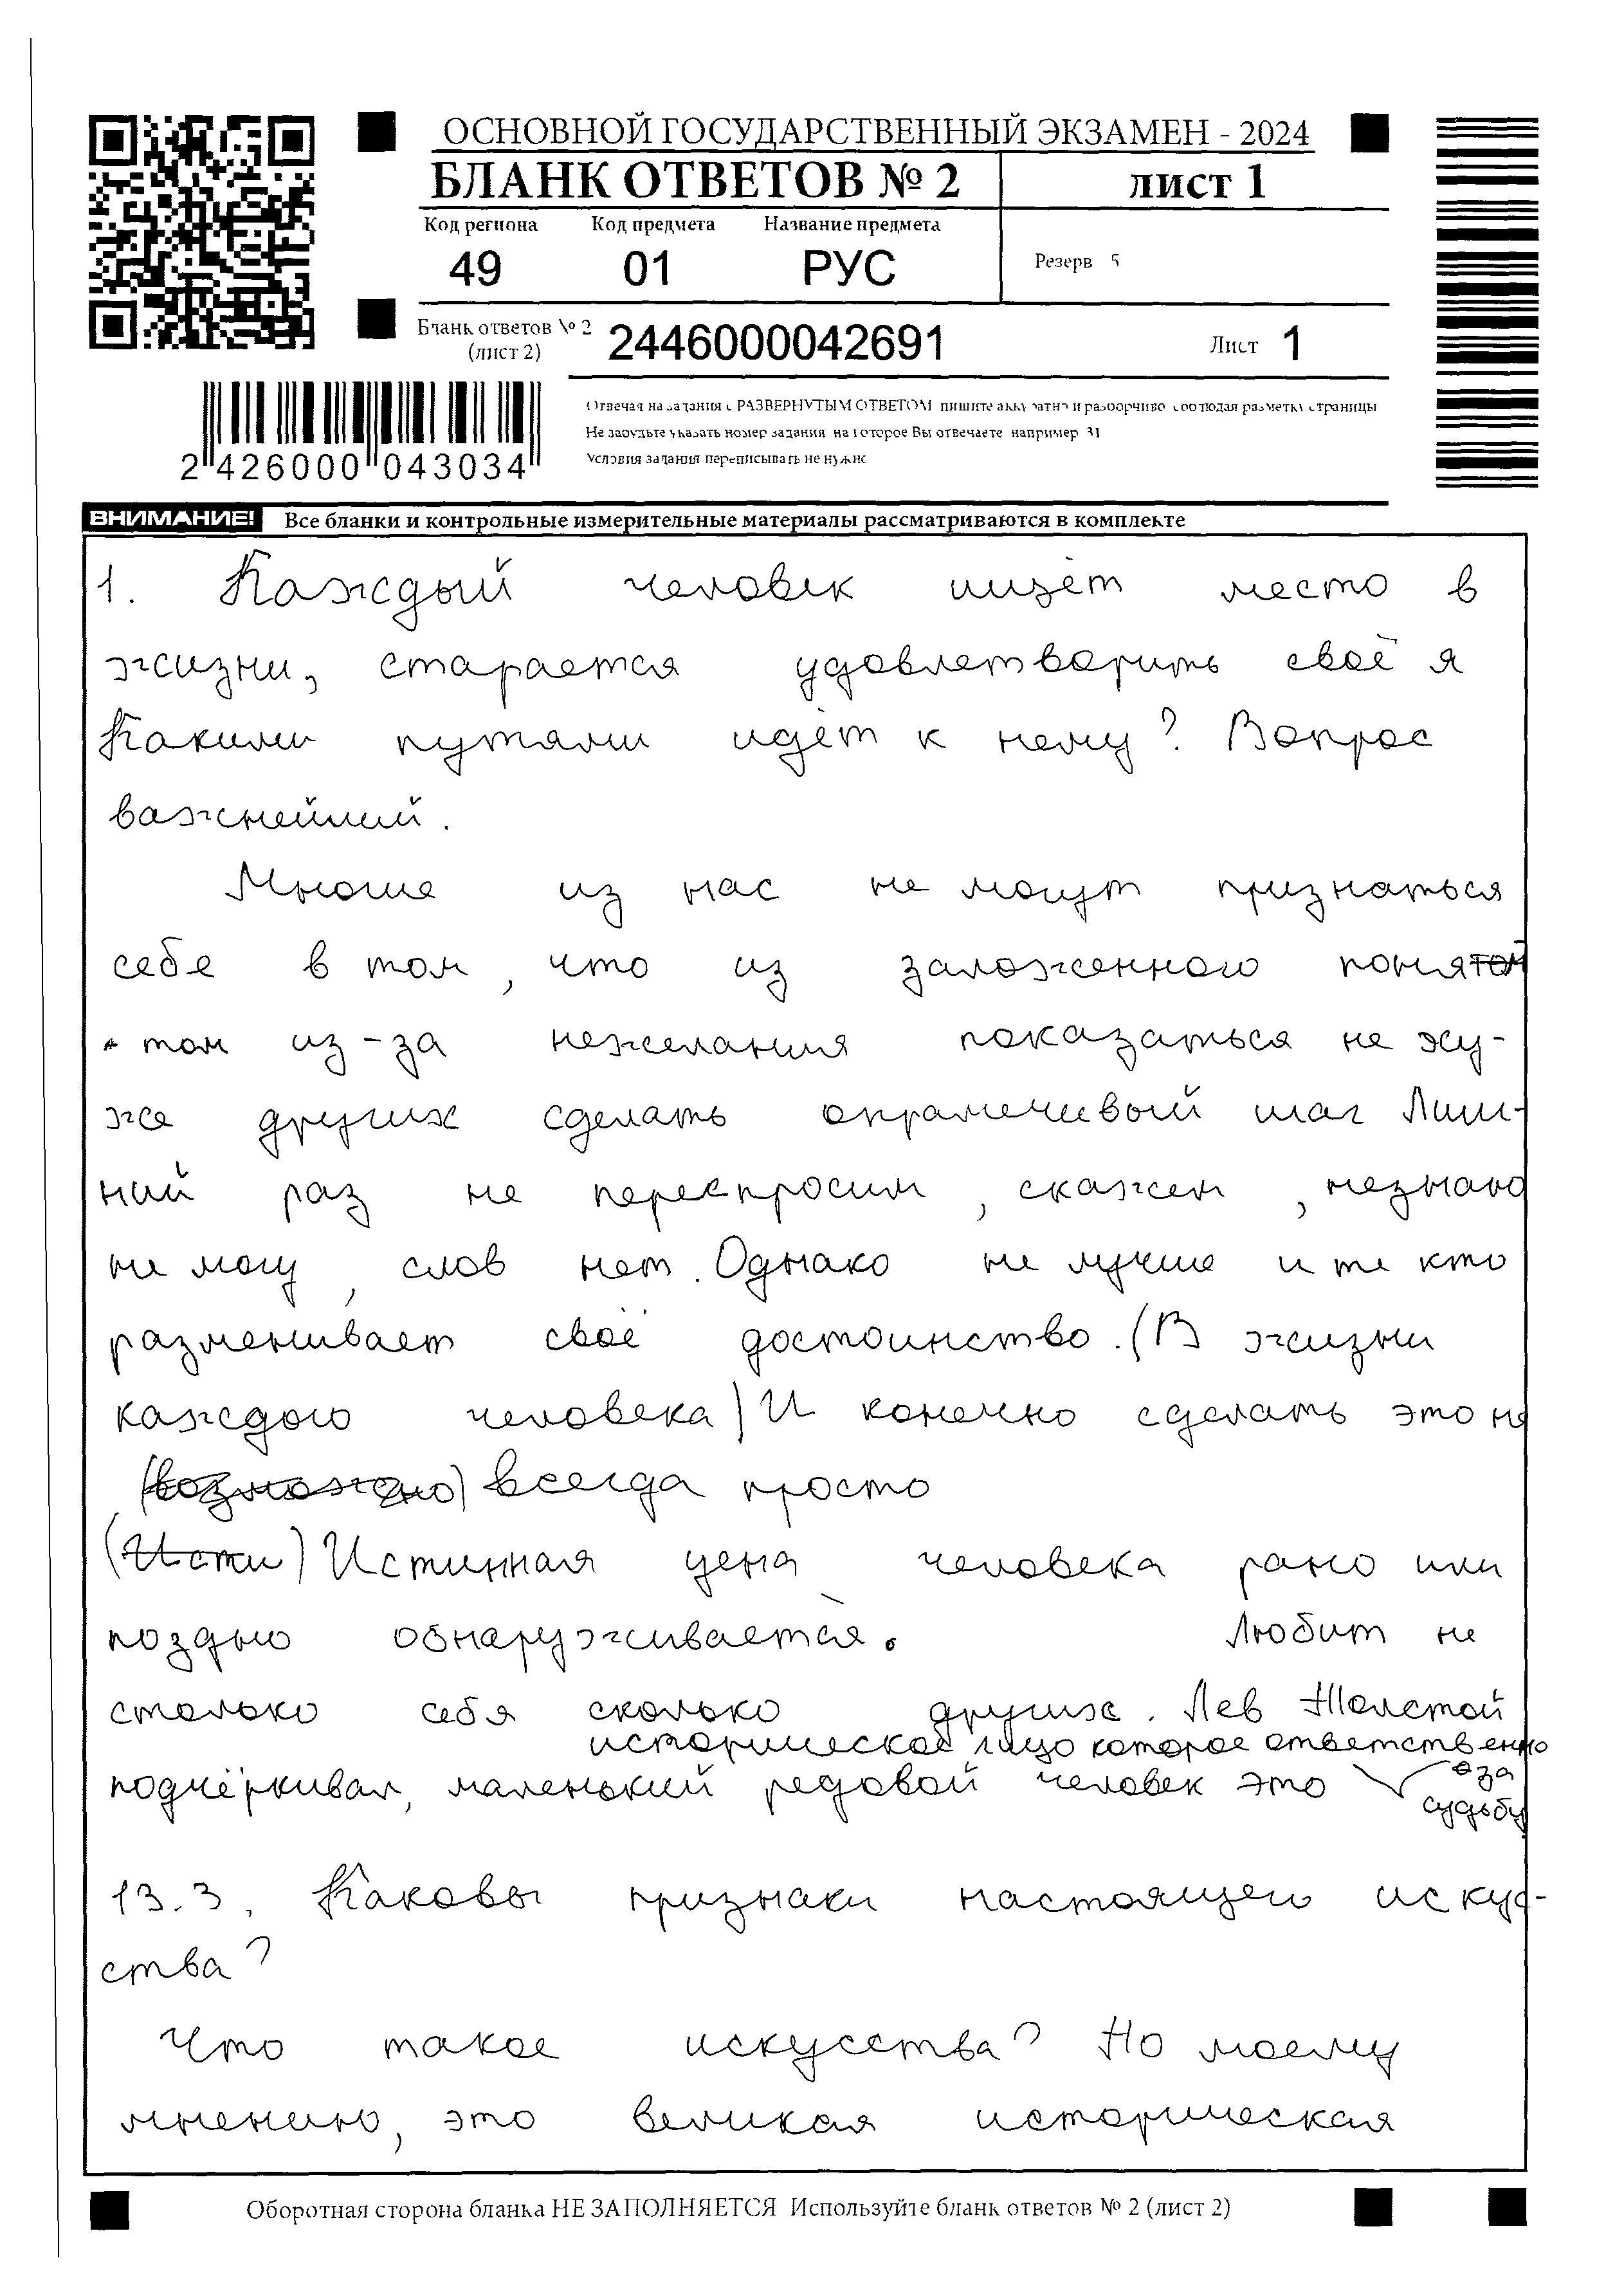 ОСНОВНОЙ ГОСУДАРСТВЕННЫЙ ЭКЗАМЕН - 2024
БЛАНК ОТВЕТОВ № 2 лист 1
Код региона Код предмета Название предмета
49 01 РУС Резерв 5
Бланк ответов № 2 (лист 2) 2446000042691 Лист 1
Отвечая на задания с РАЗВЕРНУТЫМ ОТВЕТОМ пишите аккуратно и разборчиво соблюдая разметку страницы
Не забудьте указать номер задания на которое Вы отвечаете например 31
Условия задания переписывать не нужно
2 426000 043034
ВНИМАНИЕ! Все бланки и контрольные измерительные материалы рассматриваются в комплекте
1. Каждый человек ищет место в
жизни, старается удовлетворить своё я
Какими путями идёт к нему? Вопрос
важнейший.
Многие из нас не могут признаться
себе в том, что из заложенного
том из-за нежелания показаться не ху-
же других сделать опрамечивый шаг Лиш-
ний раз не переспросим, скажем, незнаю
не могу, слов нет. Однако не лучше и те кто
разменивает своё достоинство. (В жизни
каждого человека) И конечно сделать это не
(возможно) всегда просто
(Исти) Истинная цена человека рано или
поздно обнаруживается. Любит не
столько себя сколько других. Лев Толстой
историческое лицо которое ответственно
подчёркивал, маленький редовой человек это за
судьбу
13.3. Каковы признаки настоящего искус-
ства?
Что такое искусства? По моему
мнению, это великая историческая
Оборотная сторона бланка НЕ ЗАПОЛНЯЕТСЯ Используйте бланк ответов № 2 (лист 2)